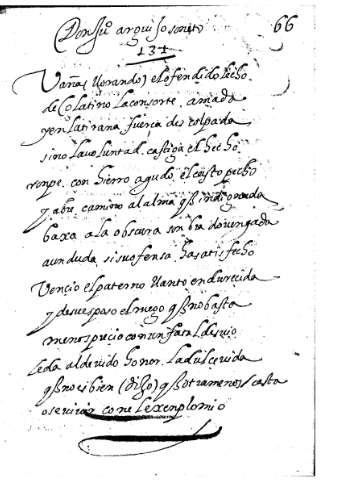 Don Ju.º arguijo soneto 66
131
Vaña (llorando) el ofendido lecho
de Colatino la consorte amada
y en la tirana fuerça desculpada
si no la voluntad, castiga el hecho
ronpe con hierro agudo el casto pecho
y abre camino al alma q̃ indignada
baxa a la obscura sonbra do vengada
aun duda si su ofensa ha satisfecho
Vencio el paterno llanto endurecida
y de su esposo el ruego q̃ no basta
menosprecio con un fatal desvio
ceda al devido honor la dulce vida
q̃ no es bien (dixo) q̃ otra menos casta
ose vivir con el exenplo mio